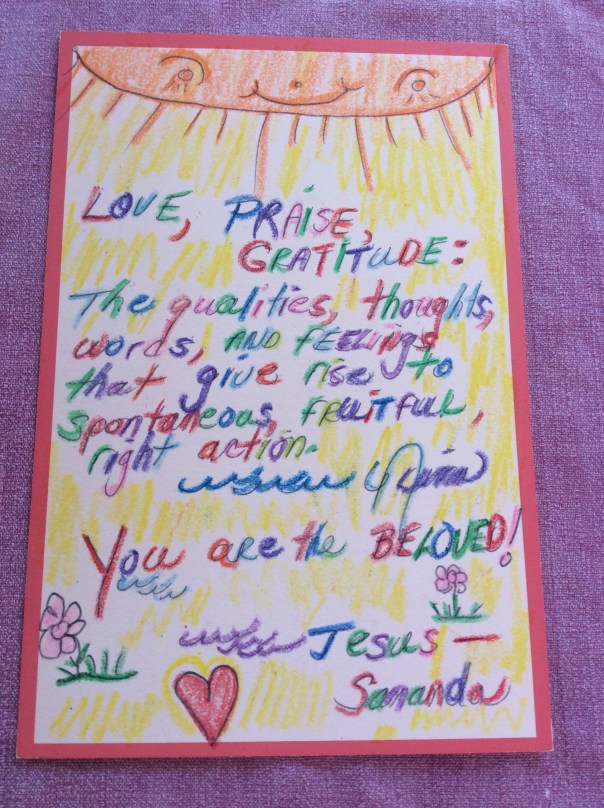 LOVE, PRAISE,
GRATITUDE:
The qualities, thoughts,
words, AND FEELings
that give rise to
spontaneous, FRUITFULL,
right action.
You are the BELOVED!
Jesus —
Sananda